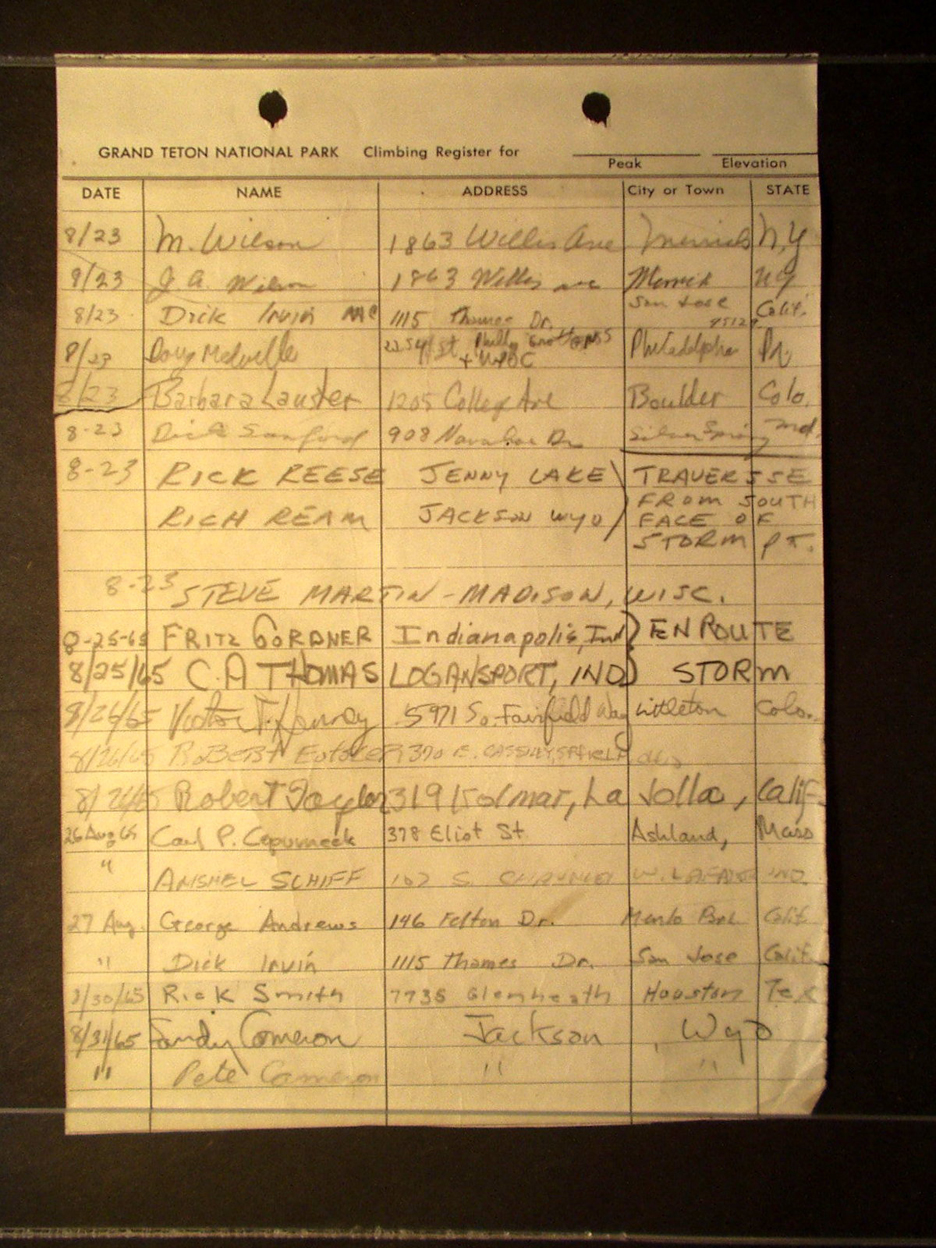 GRAND TETON NATIONAL PARK Climbing Register for
Peak Elevation
DATE NAME ADDRESS City or Town STATE
8/23 M. Wilson 1863 Willis Ave Merrick N.Y
8/23 J. A. Wilson 1863 Willis ave Merrick NY
8/23 Dick Irvin 1115 Thames Dr. San Jose Calif.
8/23 Doug Melville Philadelphia Pa
8/23 Barbara Lauster 1205 College Ave Boulder Colo.
8-23 Dick Sanford 908 Navahoe Dr. Silver Spring Md.
8-23 RICK REESE JENNY LAKE TRAVERSSE
FROM SOUTH
RICH REAM JACKSON WYO FACE OF
STORM PT.
8-23 STEVE MARTIN - MADISON, WISC.
8-25-65 FRITZ GORDNER Indianapolis, Ind EN ROUTE
8/25/65 C.A THOMAS LOGANSPORT, IND STORM
8/26/65 5971 So. Fairfield Way Littleton Colo.
8/26/65 ROBERT 370 E.
8/26/65 Robert Taylor 319 Kolmar, La Jolla, Calif
26 Aug 65 Carl P. 378 Eliot St. Ashland, Mass
" ANSHEL SCHIFF 102 S. W. LAFAYETTE IND.
27 Aug. George Andrews 146 Felton Dr. Menlo Park Calif.
" Dick Irvin 1115 Thames Dr. San Jose Calif.
8/30/65 Rick Smith 7735 Glenheath Houston Tex
8/31/65 Sandy Cameron Jackson, Wyo
" Pete Cameron " "